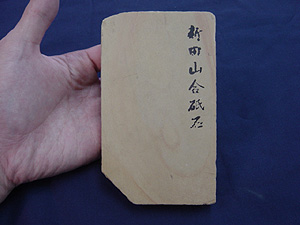 新田山合砥石